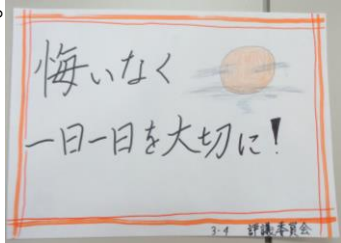 悔いなく
一日一日を大切に!
3-4 評議委員会